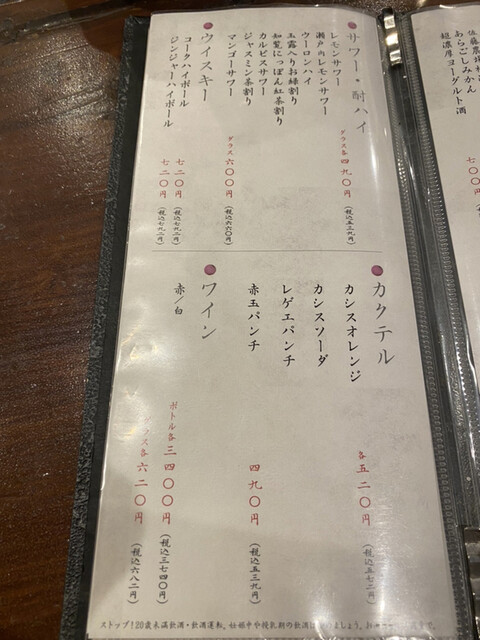 佐藤農場
あらごしみかん
超濃厚ヨーグルト酒
七〇〇円
サワー・酎ハイ
レモンサワー
瀬戸内レモンサワー
ウーロンハイ
玉露へりお緑割り
知覧にっぽん紅茶割り
カルピスサワー
ジャスミン茶割り
グラス各 四九〇円 (税込五三九円)
マンゴーサワー
グラス 六〇〇円 (税込六六〇円)
ウイスキー
コークハイボール 七二〇円 (税込七九二円)
ジンジャーハイボール 七二〇円 (税込七九二円)
カクテル
カシスオレンジ
カシスソーダ
レゲエパンチ
各五二〇円 (税込五七二円)
赤玉パンチ 四九〇円 (税込五三九円)
ワイン
赤/白
ボトル各三四〇〇円 (税込三七四〇円)
グラス各六二〇円 (税込六八二円)
ストップ!20歳未満飲酒・飲酒運転。妊娠中や授乳期の飲酒は